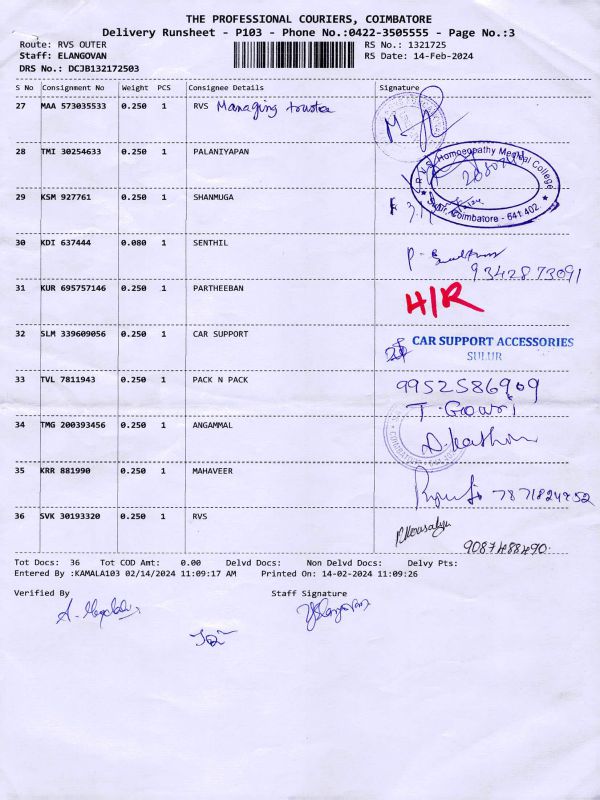 THE PROFESSIONAL COURIERS, COIMBATORE
Delivery Runsheet - P103 - Phone No.:0422-3505555 - Page No.:3
Route: RVS OUTER
RS No.: 1321725
Staff: ELANGOVAN
RS Date: 14-Feb-2024
DRS No.: DCJB132172503
S No Consignment No Weight PCS Consignee Details Signature
27 MAA 573035533 0.250 1 RVS Managing trustee
28 TMI 30254633 0.250 1 PALANIYAPAN
RVS Homoeopathy Medical College
Sulur, Coimbatore - 641 402.
29 KSM 927761 0.250 1 SHANMUGA
30 KDI 637444 0.080 1 SENTHIL
9342873091
31 KUR 695757146 0.250 1 PARTHEEBAN H/R
32 SLM 339609056 0.250 1 CAR SUPPORT CAR SUPPORT ACCESSORIES
SULUR
33 TVL 7811943 0.250 1 PACK N PACK 9952586909
T. Gowri
34 TMG 200393456 0.250 1 ANGAMMAL
35 KRR 881990 0.250 1 MAHAVEER
7871824952
36 SVK 30193320 0.250 1 RVS
9087488490.
Tot Docs: 36 Tot COD Amt: 0.00 Delvd Docs: Non Delvd Docs: Delvy Pts:
Entered By :KAMALA103 02/14/2024 11:09:17 AM Printed On: 14-02-2024 11:09:26
Verified By Staff Signature